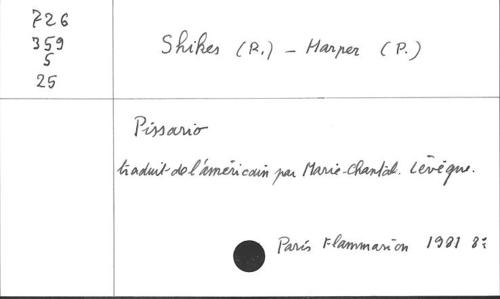 726
359
5
25
Shikes (R.) - Harper (P.)
Pissario
traduit de l'américain par Marie-Chantal. Lévêque.
Paris Flammarion 1981 8: